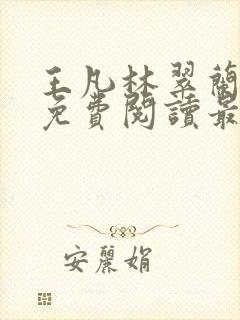 王凡林翠蘭
免費閱讀最
安麗娟